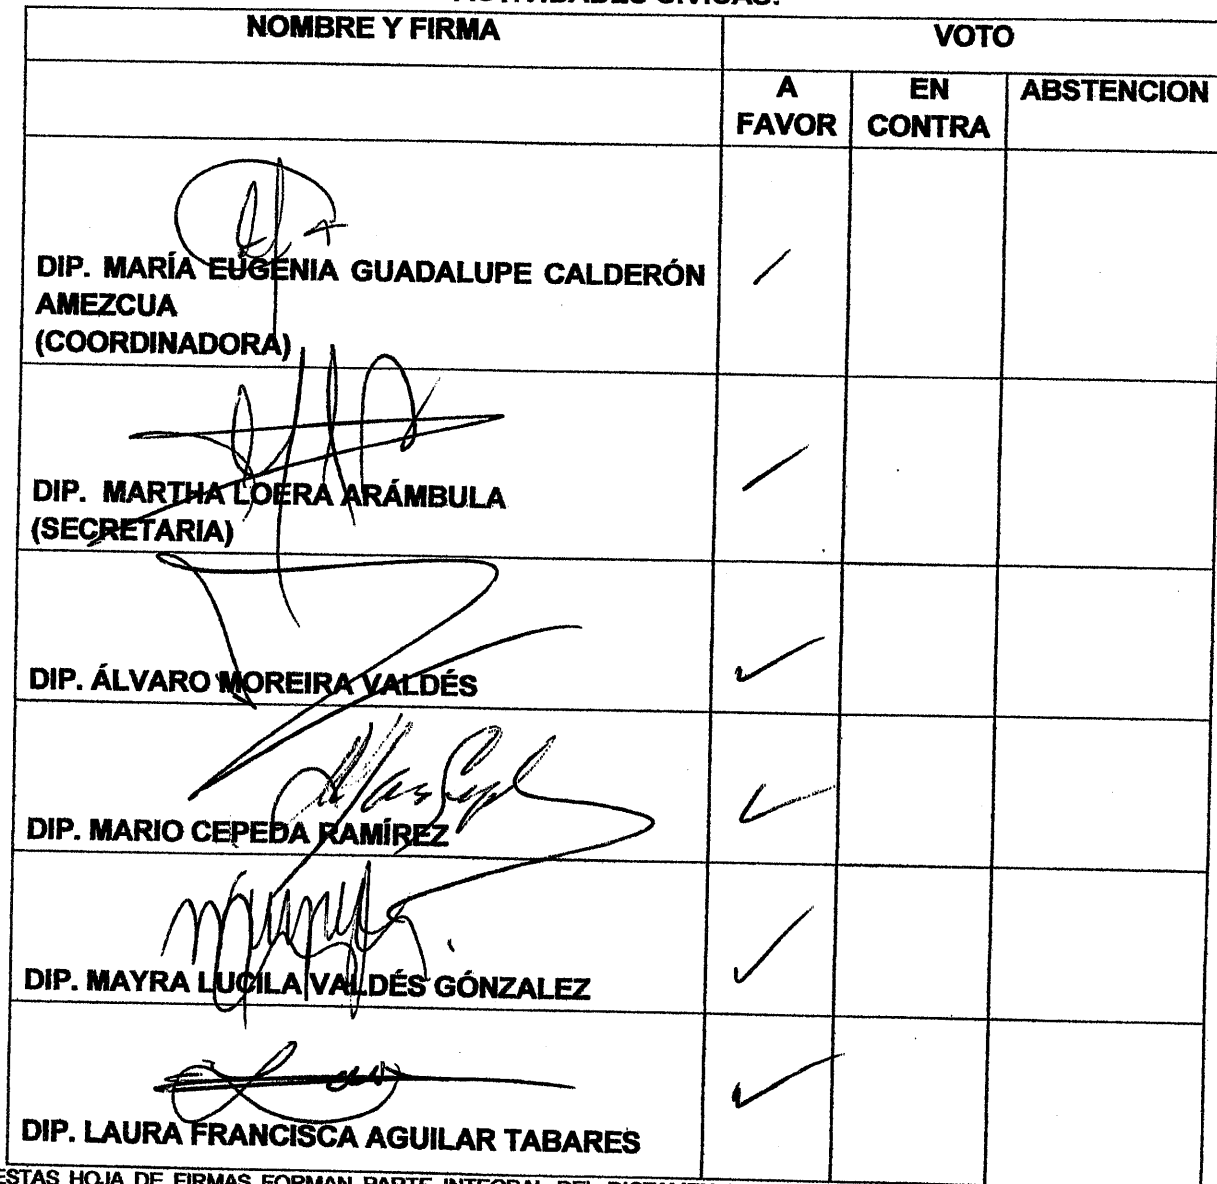 ACTIVIDADES CÍVICAS.
NOMBRE Y FIRMA
VOTO
A
FAVOR
EN
CONTRA
ABSTENCION
DIP. MARÍA EUGENIA GUADALUPE CALDERÓN
AMEZCUA
(COORDINADORA)
DIP. MARTHA LOERA ARÁMBULA
(SECRETARIA)
DIP. ÁLVARO MOREIRA VALDÉS
DIP. MARIO CEPEDA RAMÍREZ
DIP. MAYRA LUCILA VALDÉS GÓNZALEZ
DIP. LAURA FRANCISCA AGUILAR TABARES
ESTAS HOJA DE FIRMAS FORMAN PARTE INTEGRAL DEL DICTAMEN